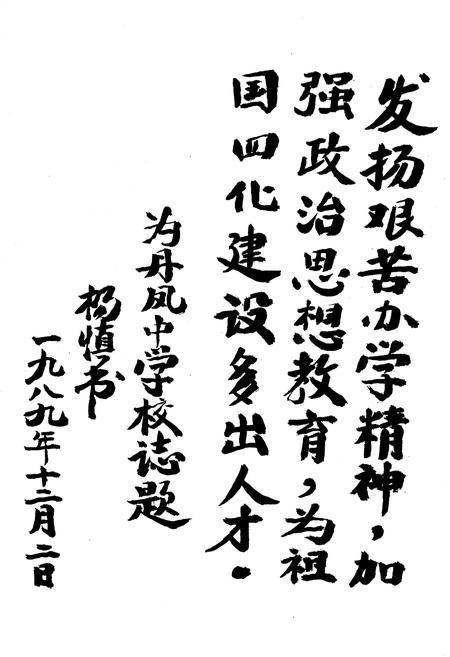 发扬艰苦办学精神，加
强政治思想教育，为祖
国四化建设多出人才．
为丹凤中学校誌题
杨慎书
一九八九年十二月二日